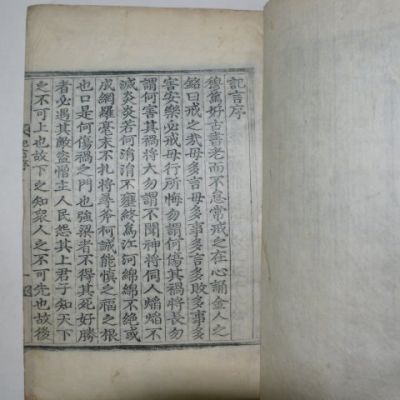 記言序
穆篤好古書老而不怠常戒之在心誦金人之
銘曰戒之哉毋多言毋多事多言多敗多事多
害安樂必戒毋行所悔勿謂何傷其禍將長勿
謂何害其禍將大勿謂不聞神將伺人焰焰不
滅炎炎若何涓涓不壅終爲江河綿綿不絶或
成網羅毫末不扎將尋斧柯誠能愼之福之根
也口是何傷禍之門也強梁者不得其死好勝
者必遇其敵盜憎主人民怨其上君子知天下
之不可上也故下之知衆人之不可先也故後
記言序 一